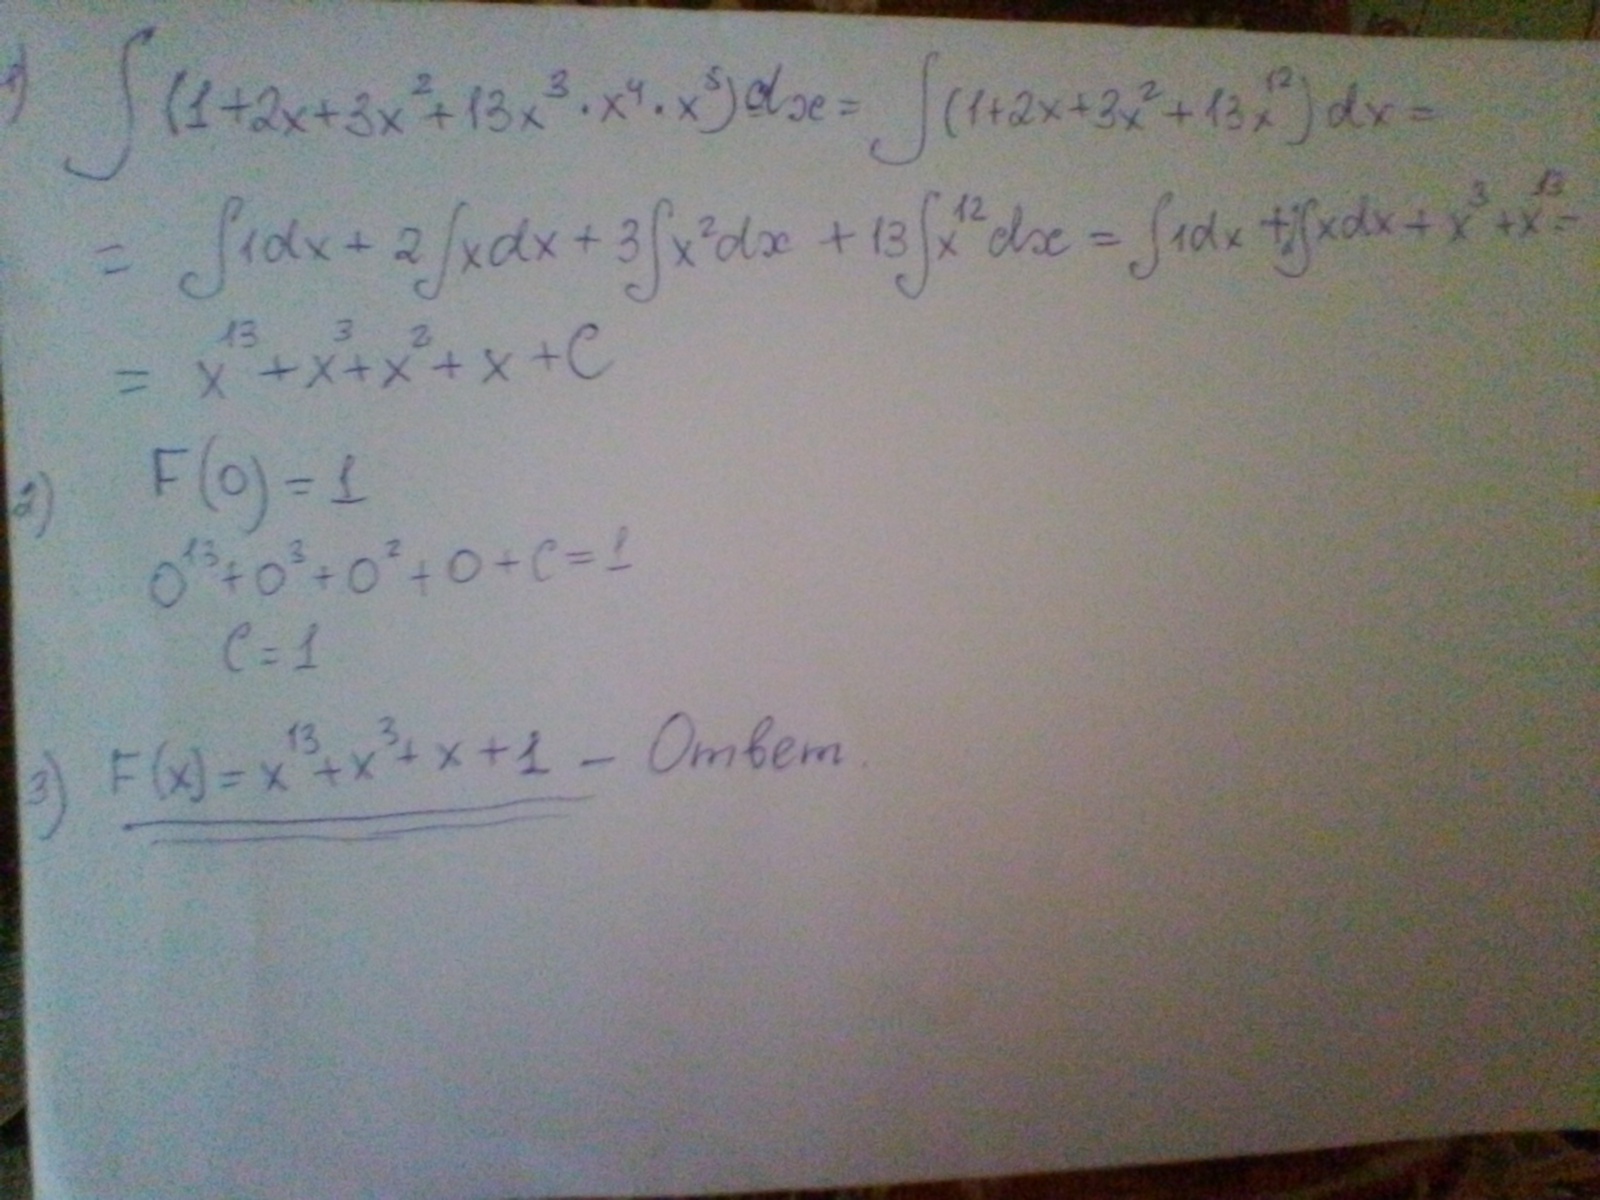 1) ∫(1+2x+3x²+13x³·x⁴·x⁵)dx = ∫(1+2x+3x²+13x¹²)dx =
= ∫1dx + 2∫xdx + 3∫x²dx + 13∫x¹²dx = ∫1dx + 2∫xdx + x³ + x¹³ =
= x¹³ + x³ + x² + x + C
2) F(0) = 1
0¹³ + 0³ + 0² + 0 + C = 1
C = 1
3) F(x) = x¹³ + x³ + x + 1 – Ответ.